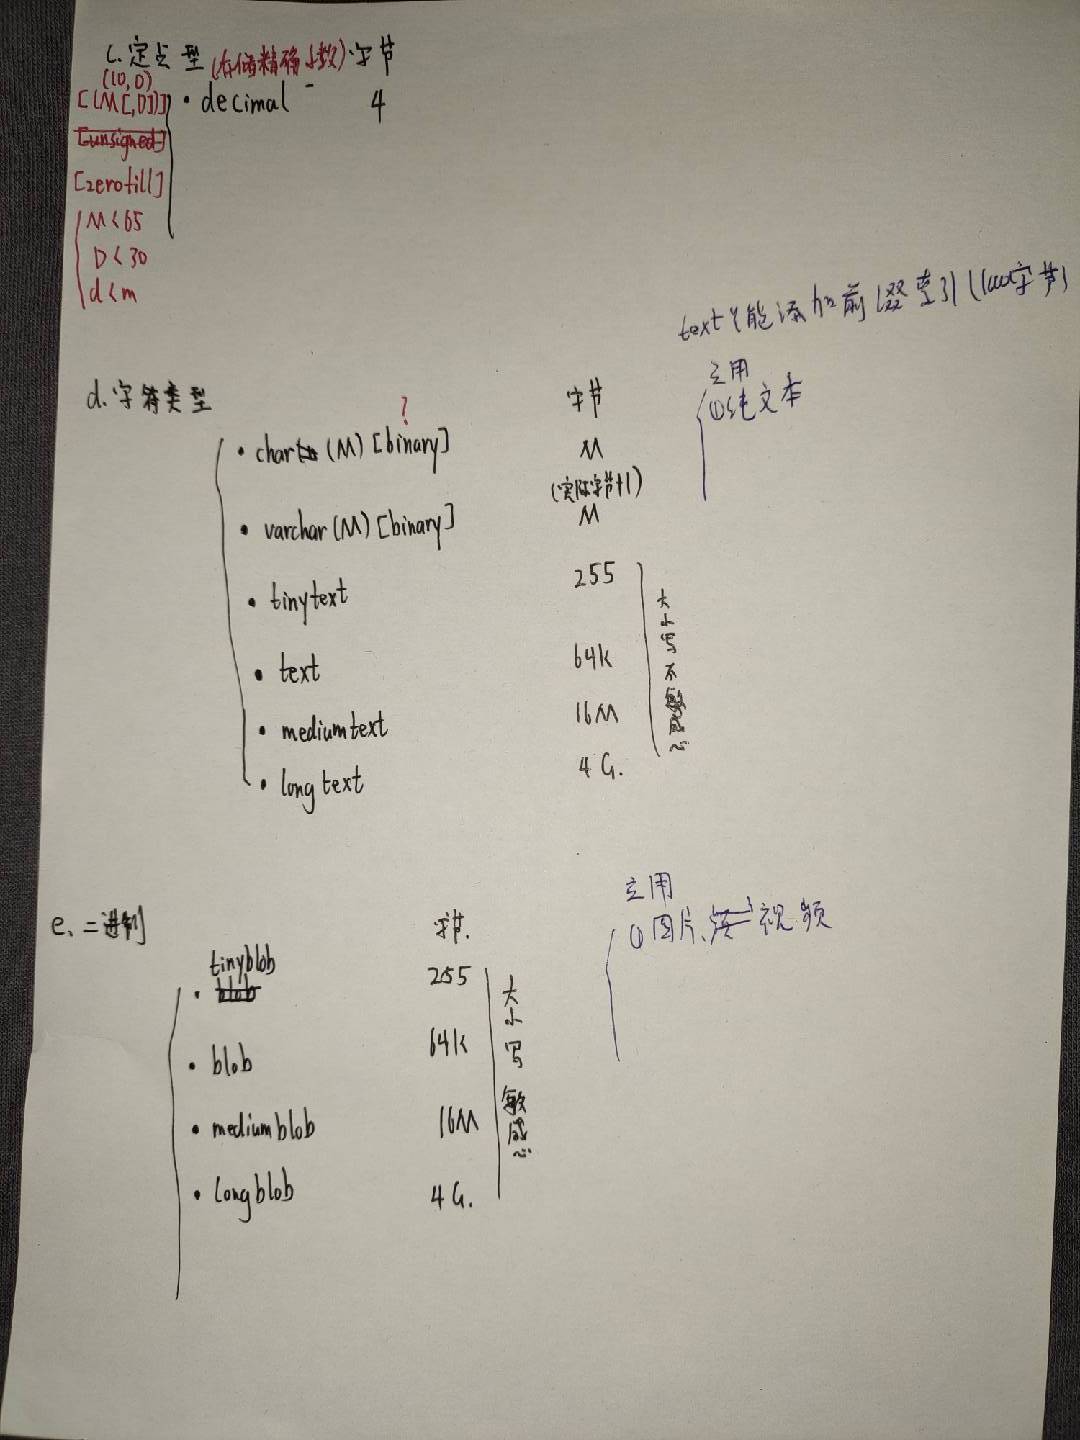 c.定点型(存储精确小数) 字节
(10,0)
[(M[,D])] • decimal 4
[unsigned]
[zerofill]
M<65
D<30
d<m
text只能添加前缀索引(1000字节)
d.字符类型 字节
应用
①纯文本
?
• char(M)[binary] M
(实际字节+1)
• varchar(M)[binary] M
• tinytext 255
• text 64k
• mediumtext 16M
• longtext 4G.
大小写不敏感
e、二进制 字节.
应用
①图片、视频
tinyblob
• blob 255
• blob 64k
• mediumblob 16M
• longblob 4G.
大小写敏感